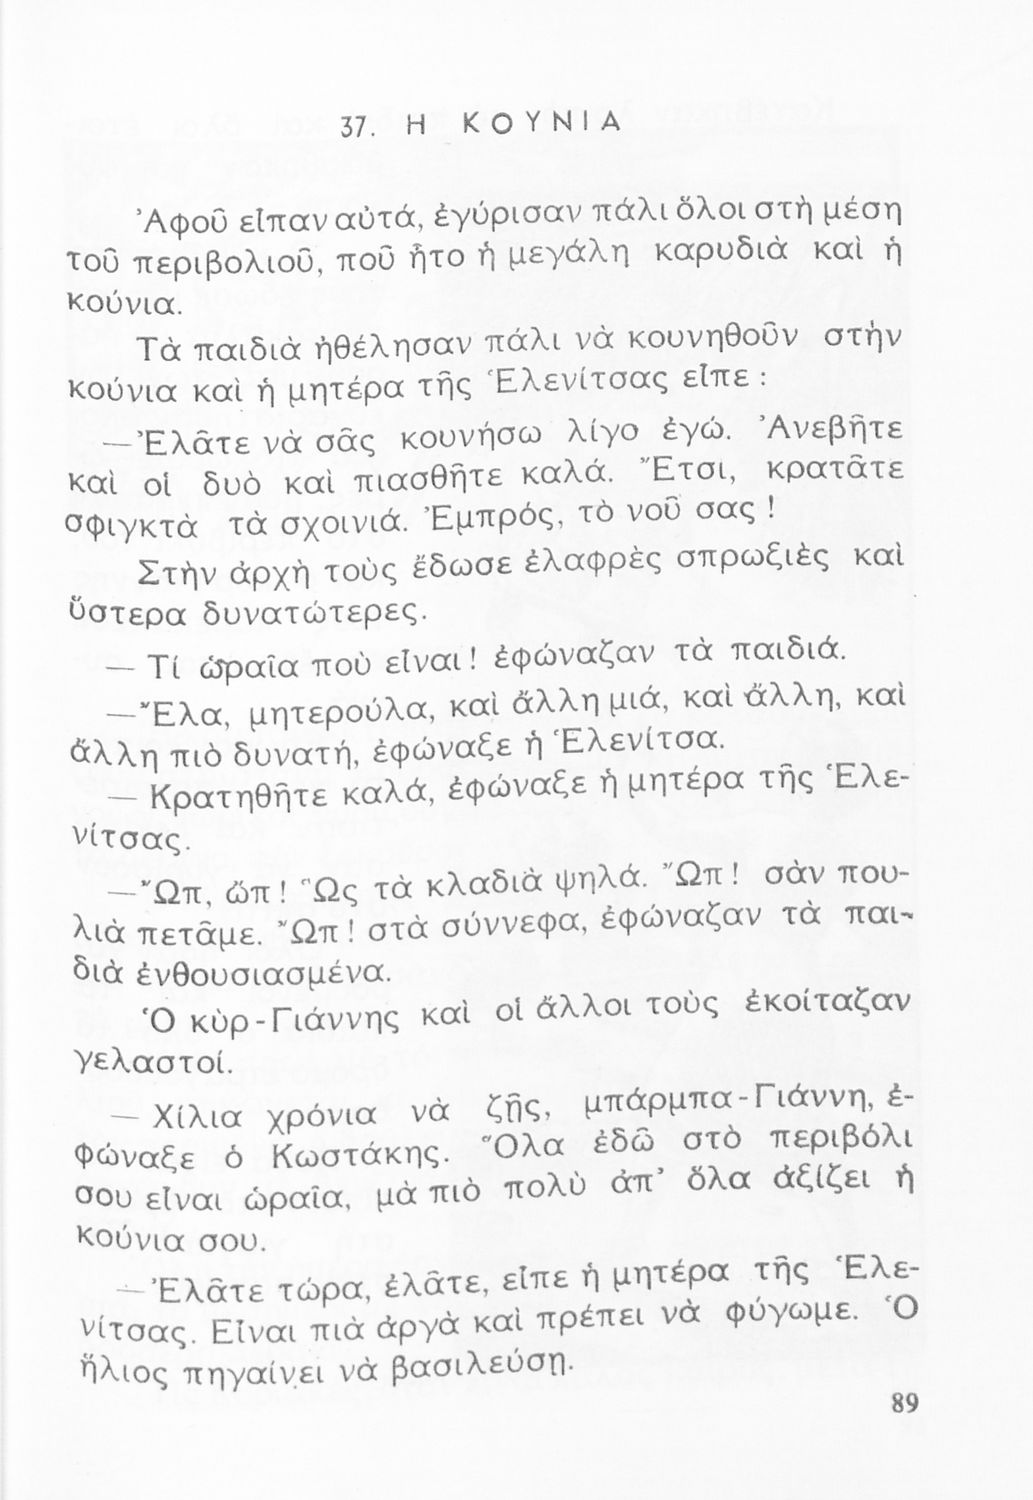 37. Η ΚΟΥΝΙΑ
Ἀφοῦ εἶπαν αὐτά, ἐγύρισαν πάλι ὅλοι στὴ μέση
τοῦ περιβολιοῦ, ποῦ ἦτο ἡ μεγάλη καρυδιὰ καὶ ἡ
κούνια.
Τὰ παιδιὰ ἠθέλησαν πάλι νὰ κουνηθοῦν στὴν
κούνια καὶ ἡ μητέρα τῆς Ἑλενίτσας εἶπε :
— Ἐλᾶτε νὰ σᾶς κουνήσω λίγο ἐγώ. Ἀνεβῆτε
καὶ οἱ δυὸ καὶ πιασθῆτε καλά. Ἔτσι, κρατᾶτε
σφιγκτὰ τὰ σχοινιά. Ἐμπρός, τὸ νοῦ σας !
Στὴν ἀρχὴ τοὺς ἔδωσε ἐλαφρὲς σπρωξιὲς καὶ
ὕστερα δυνατώτερες.
— Τί ὡραῖα ποὺ εἶναι ! ἐφώναζαν τὰ παιδιά.
— Ἔλα, μητερούλα, καὶ ἄλλη μιά, καὶ ἄλλη, καὶ
ἄλλη πιὸ δυνατή, ἐφώναξε ἡ Ἑλενίτσα.
— Κρατηθῆτε καλά, ἐφώναξε ἡ μητέρα τῆς Ἑλε-
νίτσας.
— Ὤπ, ὤπ ! Ὣς τὰ κλαδιὰ ψηλά. Ὤπ ! σὰν που-
λιὰ πετᾶμε. Ὤπ ! στὰ σύννεφα, ἐφώναζαν τὰ παι-
διὰ ἐνθουσιασμένα.
Ὁ κὺρ - Γιάννης καὶ οἱ ἄλλοι τοὺς ἐκοίταζαν
γελαστοί.
— Χίλια χρόνια νὰ ζῇς, μπάρμπα - Γιάννη, ἐ-
φώναξε ὁ Κωστάκης. Ὅλα ἐδῶ στὸ περιβόλι
σου εἶναι ὡραῖα, μὰ πιὸ πολὺ ἀπ’ ὅλα ἀξίζει ἡ
κούνια σου.
— Ἐλᾶτε τώρα, ἐλᾶτε, εἶπε ἡ μητέρα τῆς Ἑλε-
νίτσας. Εἶναι πιὰ ἀργὰ καὶ πρέπει νὰ φύγωμε. Ὁ
ἥλιος πηγαίνει νὰ βασιλεύσῃ.
89